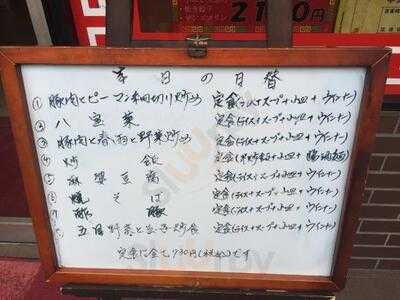 2100円
本日の日替
① 豚肉とピーマン細切り炒め 定食(ライス+スープ+小皿+ウインナー)
② 八宝菜 定食(ライス+スープ+小皿+ウインナー)
③ 豚肉と春雨と野菜炒め 定食(ライス+スープ+小皿+ウインナー)
④ 炒飯 定食(スープ+小皿+
⑤ 麻婆豆腐 定食(ライス+スープ+小皿+ウインナー)
⑥ 焼そば 定食(ライス+スープ+小皿+ウインナー)
⑦ 酢豚 定食(ライス+スープ+小皿+ウインナー)
⑧ 五目野菜と玉子炒食 定食(ライス+スープ+小皿+ウインナー)
定食は全て930円(税込)です